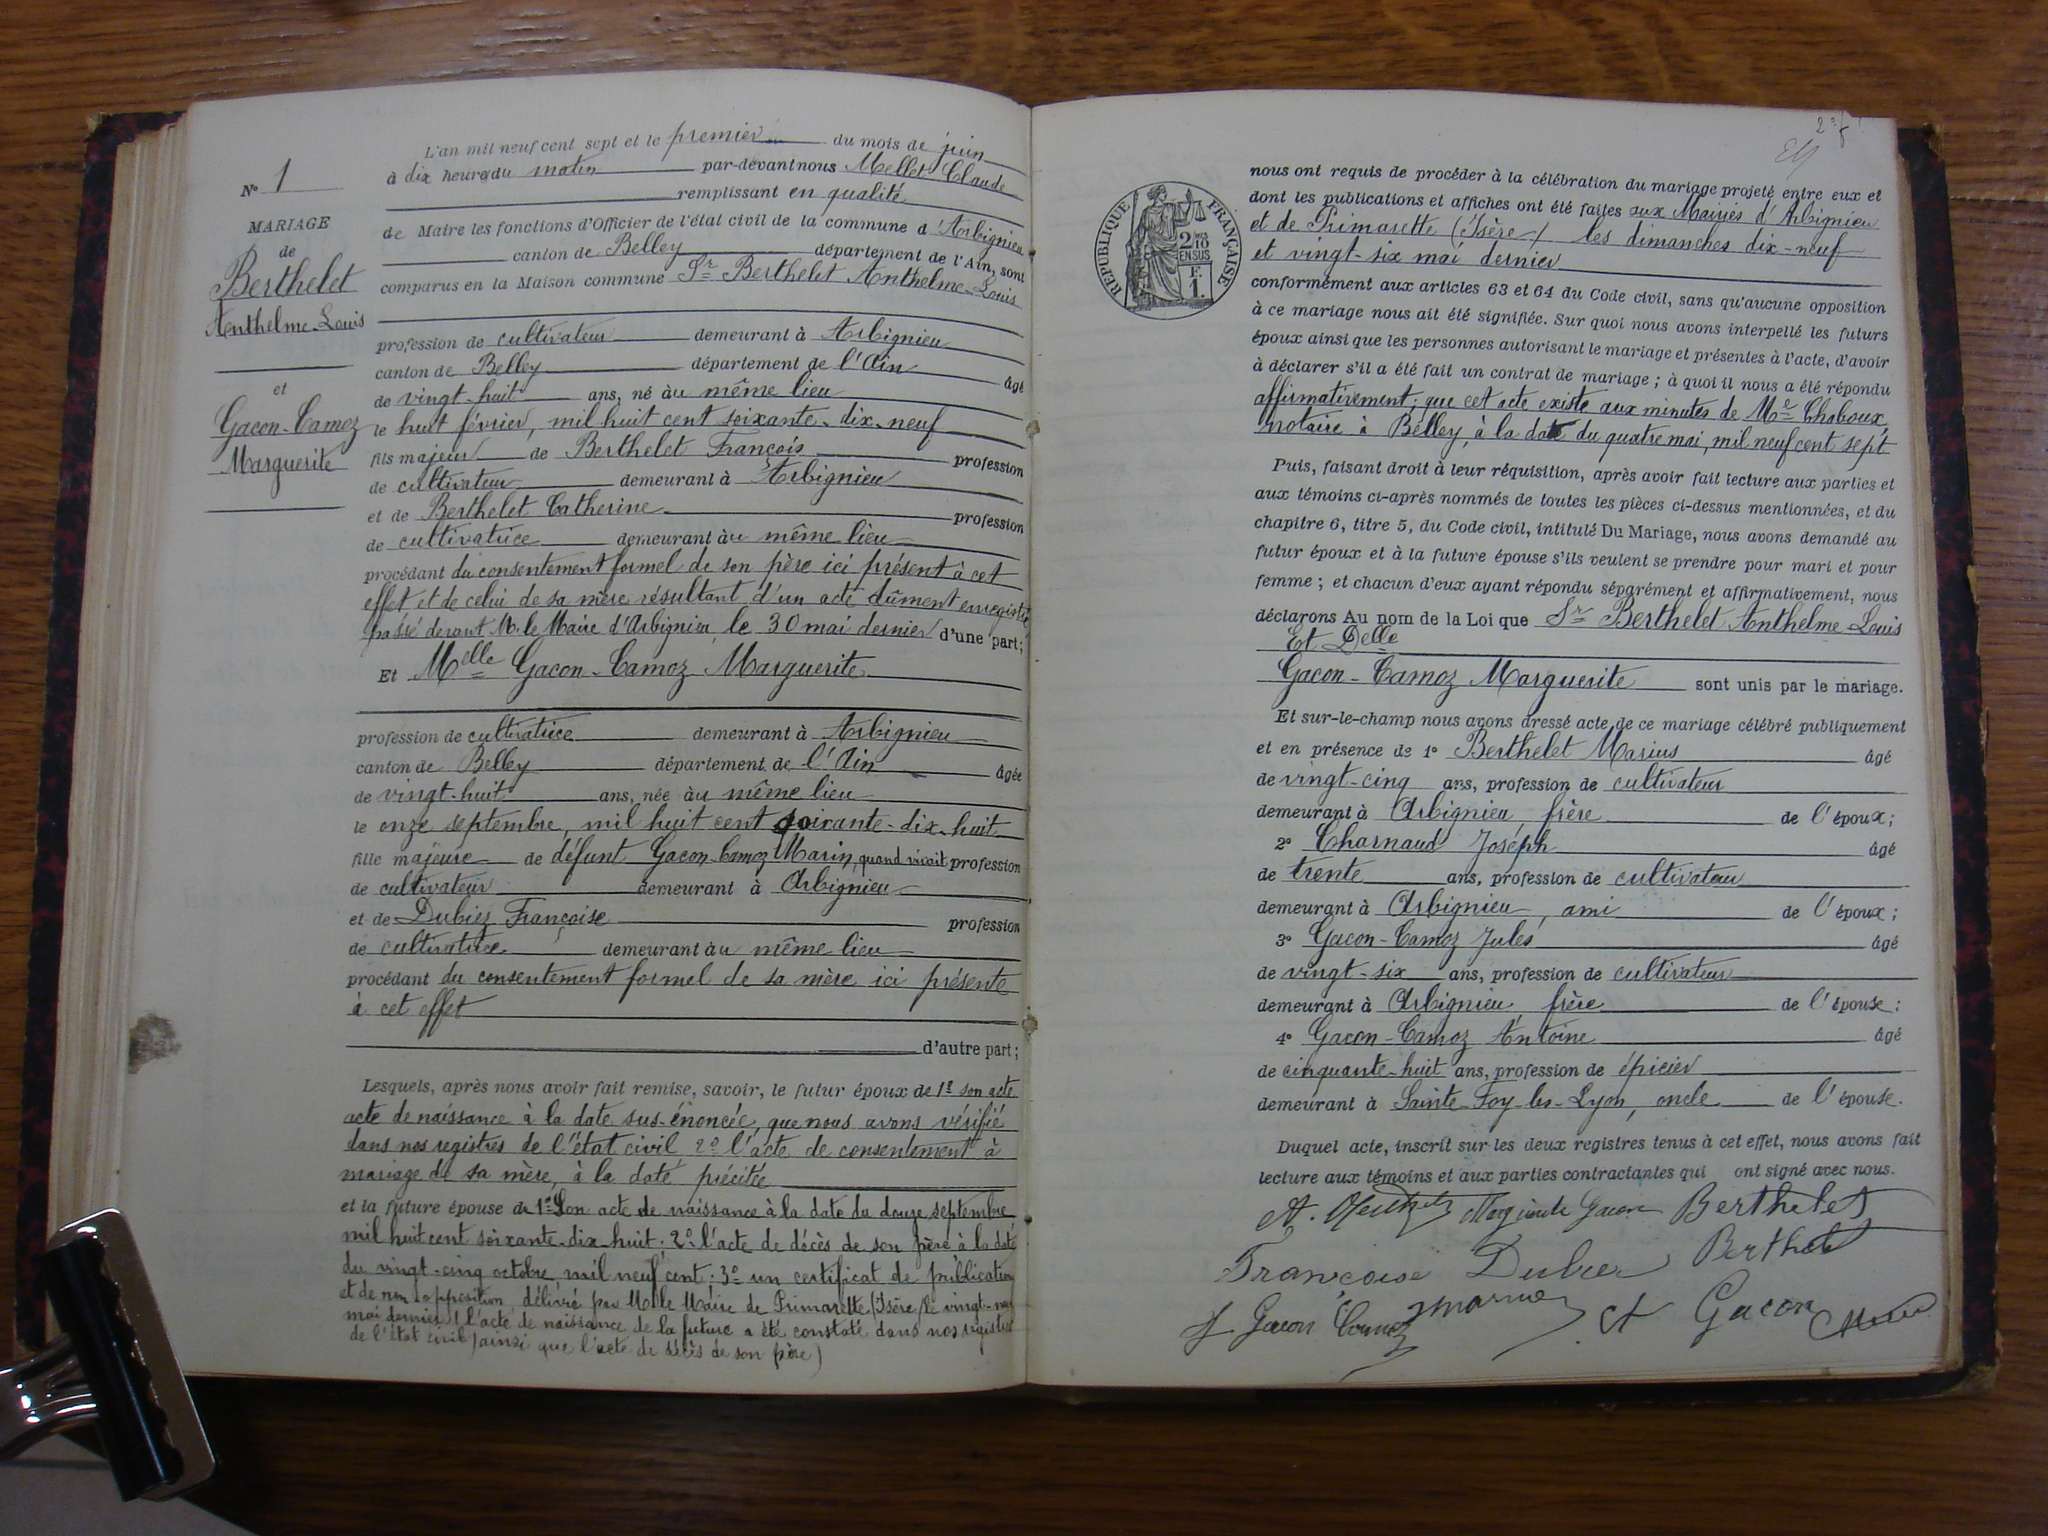 L'an mil neuf cent sept et le premier du mois de juin
à dix heures du matin par-devant nous Mellet Claude
remplissant en qualité
de Maire les fonctions d'Officier de l'état civil de la commune d'Arbignieu
canton de Belley département de l'Ain, sont
comparus en la Maison commune Sr Berthelet Anthelme-Louis
profession de cultivateur demeurant à Arbignieu
canton de Belley département de l'Ain âgé
de vingt-huit ans, né au même lieu
le huit février, mil huit cent soixante-dix-neuf
fils majeur de Berthelet François profession
de cultivateur demeurant à Arbignieu
et de Berthelet Catherine profession
de cultivatrice demeurant au même lieu
procédant du consentement formel de son père ici présent à cet
effet et de celui de sa mère résultant d'un acte dûment enregistré
passé devant M. le Maire d'Arbignieu le 30 mai dernier d'une part;
Et Melle Gacon-Camoz Marguerite
profession de cultivatrice demeurant à Arbignieu
canton de Belley département de l'Ain âgée
de vingt-huit ans, née au même lieu
le onze septembre, mil huit cent soixante-dix-huit
fille majeure de défunt Gacon-Camoz Marin, quand vivait profession
de cultivateur demeurant à Arbignieu
et de Dubiez Françoise profession
de cultivatrice demeurant au même lieu
procédant du consentement formel de sa mère ici présente
à cet effet
d'autre part;
Lesquels, après nous avoir fait remise, savoir, le futur époux de 1º son acte
acte de naissance à la date sus-énoncée, que nous avons vérifié
dans nos registres de l'état civil, 2º l'acte de consentement à
mariage de sa mère, à la date précitée
et la future épouse de 1º Son acte de naissance à la date du douze septembre
mil huit cent soixante-dix-huit; 2º l'acte de décès de son père à la date
du vingt-cinq octobre mil neuf cent; 3º un certificat de publication
et de non opposition délivré par M. le Maire de Primarette (Isère) le vingt-neuf
mai dernier (l'acte de naissance de la future a été constaté dans nos registres
de l'état civil ainsi que l'acte de décès de son père)
Nº 1
MARIAGE
de
Berthelet
Anthelme-Louis
et
Gacon-Camoz
Marguerite
RÉPUBLIQUE FRANÇAISE
2/10
EN SUS
F.
1.
nous ont requis de procéder à la célébration du mariage projeté entre eux et
dont les publications et affiches ont été faites aux Mairies d'Arbignieu
et de Primarette (Isère) les dimanches dix-neuf
et vingt-six mai dernier
conformément aux articles 63 et 64 du Code civil, sans qu'aucune opposition
à ce mariage nous ait été signifiée. Sur quoi nous avons interpellé les futurs
époux ainsi que les personnes autorisant le mariage et présentes à l'acte, d'avoir
à déclarer s'il a été fait un contrat de mariage; à quoi il nous a été répondu
affirmativement; que cet acte existe aux minutes de Me Chaboux
notaire à Belley, à la date du quatre mai, mil neuf cent sept
Puis, faisant droit à leur réquisition, après avoir fait lecture aux parties et
aux témoins ci-après nommés de toutes les pièces ci-dessus mentionnées, et du
chapitre 6, titre 5, du Code civil, intitulé Du Mariage, nous avons demandé au
futur époux et à la future épouse s'ils veulent se prendre pour mari et pour
femme; et chacun d'eux ayant répondu séparément et affirmativement, nous
déclarons Au nom de la Loi que Sr Berthelet Anthelme-Louis
Et Delle
Gacon-Camoz Marguerite sont unis par le mariage.
Et sur-le-champ nous avons dressé acte de ce mariage célébré publiquement
et en présence de 1º Berthelet Marius âgé
de vingt-cinq ans, profession de cultivateur
demeurant à Arbignieu, frère de l'époux;
2º Charnaud Joseph âgé
de trente ans, profession de cultivateur
demeurant à Arbignieu, ami de l'époux;
3º Gacon-Camoz Jules âgé
de vingt-six ans, profession de cultivateur
demeurant à Arbignieu, frère de l'épouse;
4º Gacon-Camoz Antoine âgé
de cinquante-huit ans, profession de épicier
demeurant à Sainte-Foy-les-Lyon, oncle de l'épouse.
Duquel acte, inscrit sur les deux registres tenus à cet effet, nous avons fait
lecture aux témoins et aux parties contractantes qui ont signé avec nous.
Marguerite Gacon Berthelet
Françoise Dubiez Berthelet
J Gacon Camoz A Gacon